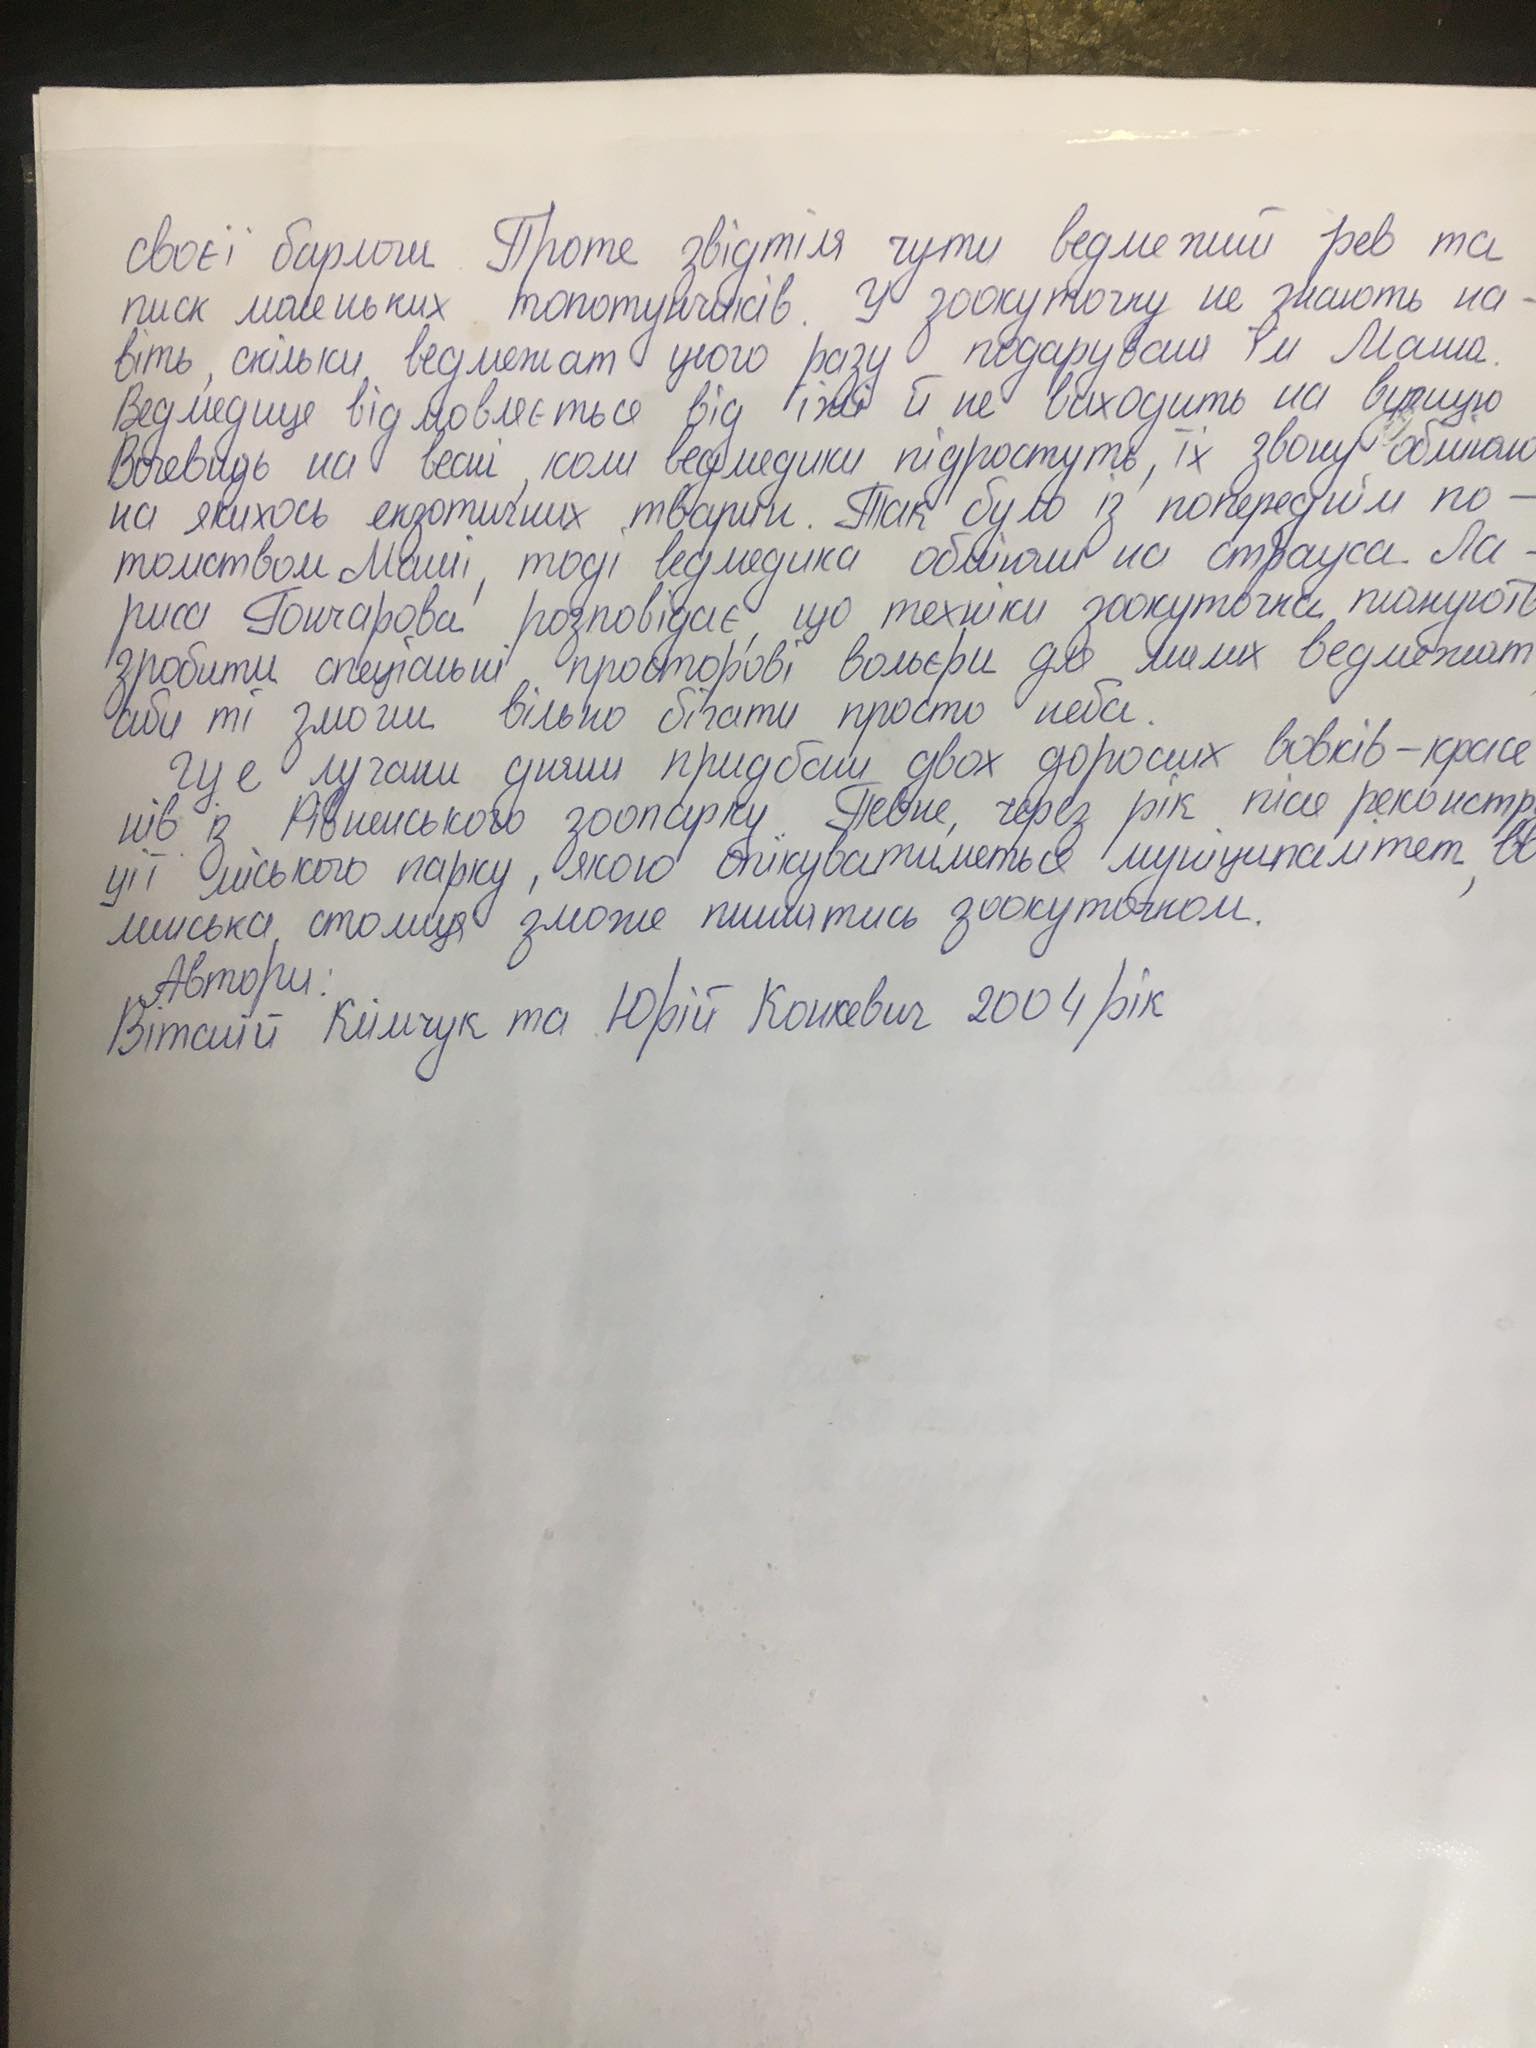 своєї барлоги. Проте звідтіля чути ведмежий рев та
писк маленьких топотунчиків. У зоокуточку не знають на-
віть, скільки ведмежат цього разу подарували їм Маша.
Ведмедиця відмовляється від їжі й не виходить на вулицю
Вочевидь на весні, коли ведмедики підростуть, їх знову обміняю
на якихось екзотичних тварин. Так було із попереднім по-
томством Маші, тоді ведмедика обміняли на страуса. Ла-
риса Гончарова розповідає, що техніки зоокуточка планують
зробити спеціальні просторові вольєри для малих ведмежат,
аби ті змогли вільно бігати просто неба.
Ще лучани днями придбали двох дорослих вовків-красе
нів із Рівненського зоопарку. Певне, через рік після реконстр
ції міського парку, якою опікуватиметься муніципалітет, во
линська столиця зможе пишатись зоокуточком.
Автори:
Віталій Клімчук та Юрій Конкевич 2004 рік